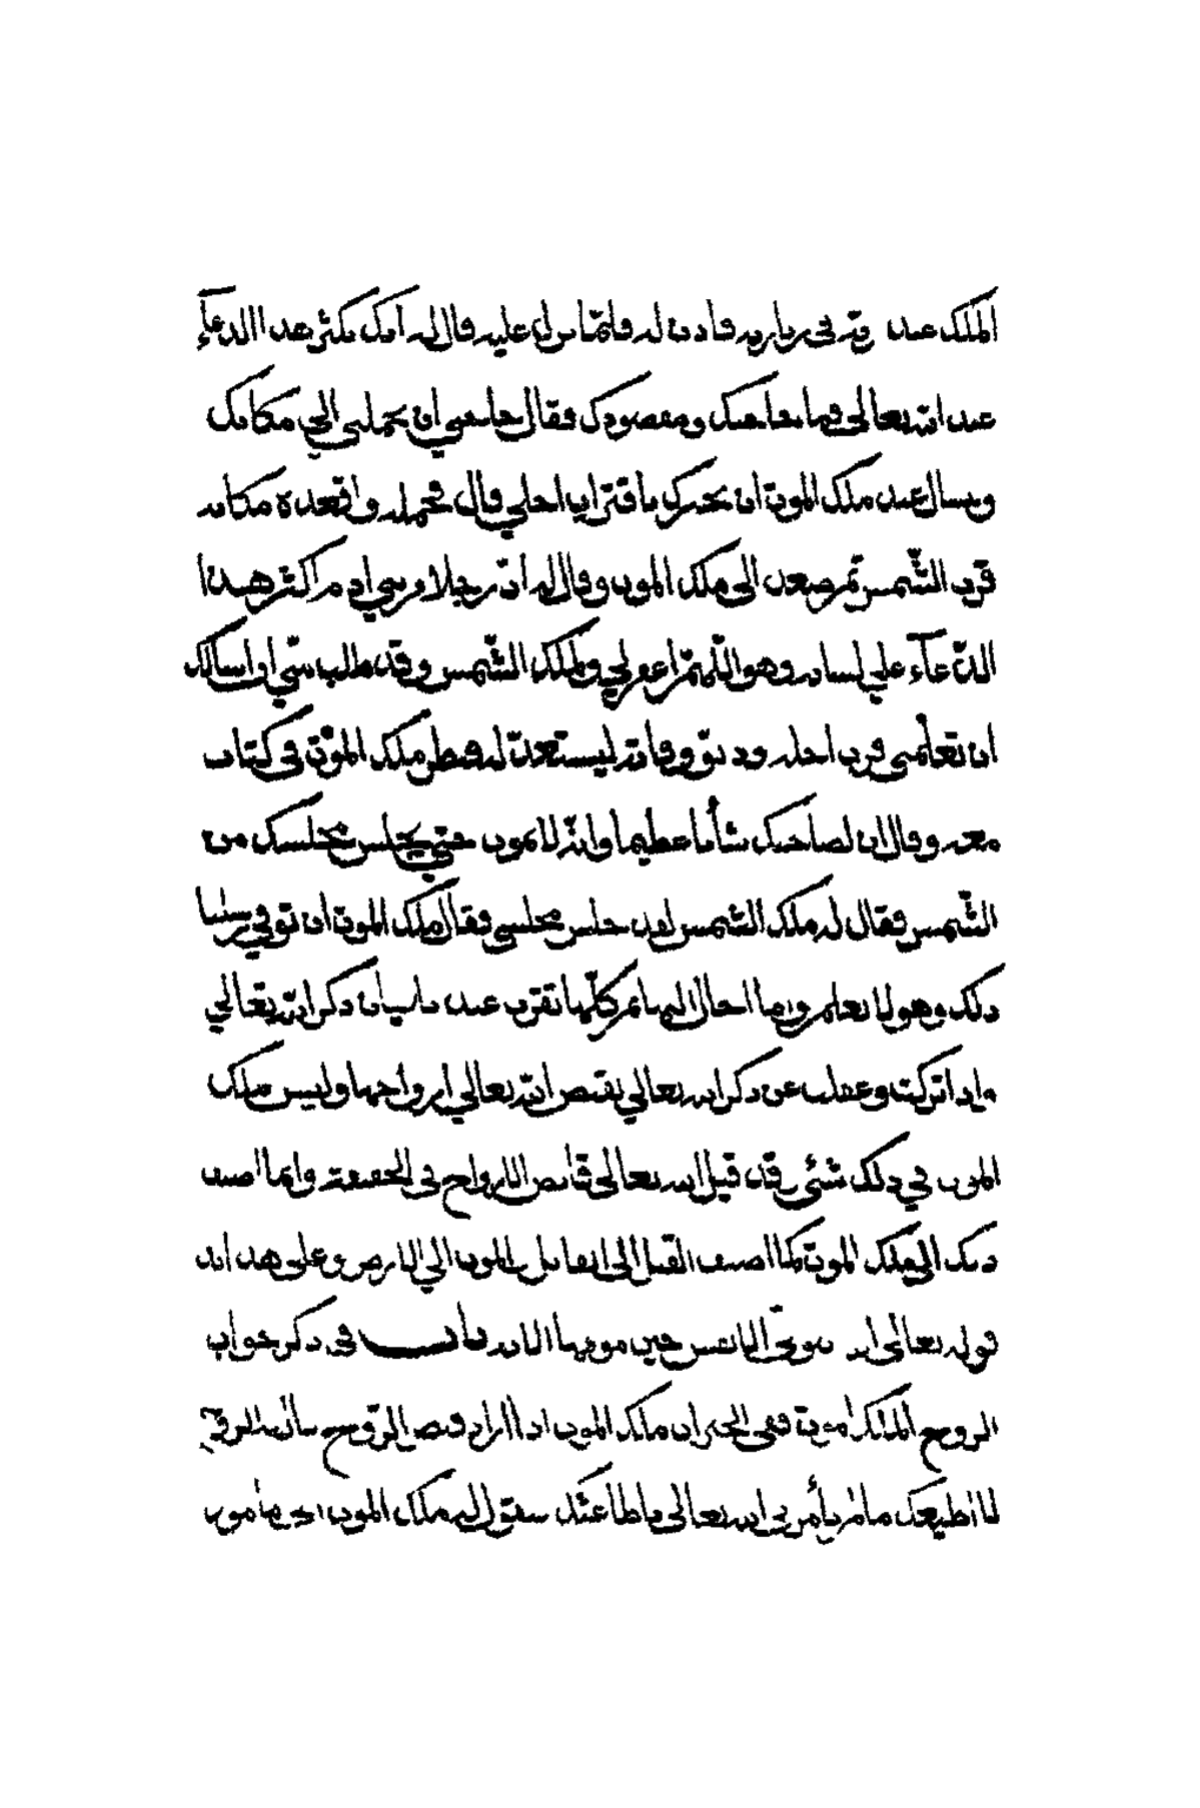 الملك عند ربّه في زيارته فاذن له فلمّا نزل عليه قال له انك تكثر هذا الدعآء
عند الله تعالى فما حاجتك ومقصودك فقال حاجتي ان تحملني الي مكانك
وتسال عند ملك الموت ان يخبرك باقتراب اجلي قال فحمله واقعده مكانه
قرب الشّمس ثمّ صعد الى ملك الموت وقال له انّ رجلا من بني ادم اكثر هذا
الدّعآء علي لسانه وهو اللّهمّ اغفر لي ولملك الشّمس وقد طلب منّي ان اسالك
ان تعلّمني قرب اجله ووفاته ليستعدّ له فنظر ملك الموت في كتاب
معه وقال ان لصاحبك شأنا عظيما وانّه لا يموت حتي يجلس مجلسك من
الشّمس فقال له ملك الشّمس لقد جلس مجلسي فقال ملك الموت ان توفي رسلنا
ذلك وهو لا يعلم واما اجال البهائم كلّها تقرب عند نسيان ذكر الله تعالي
واذا تركت وغفلت عن ذكر الله تعالي يقبض الله تعالي ارواحها وليس ملك
الموت في ذلك شئي وقد قيل الله تعالى قابض الارواح في الحقيقة وانما اضيف
ذلك الي ملك الموت كما اضيف القتل الى القاتل والموت الي المرض وعلى هذا يدل
قوله تعالى الله يتوفّى الانفس حين موتها الاية باب في ذكر جواب
الروح لملك الموت ففي الخبر ان ملك الموت اذا اراد قبض الرّوح
لا اطيعك مالم يأمرني الله تعالى باطاعتك سيقول له ملك الموت اني مامور